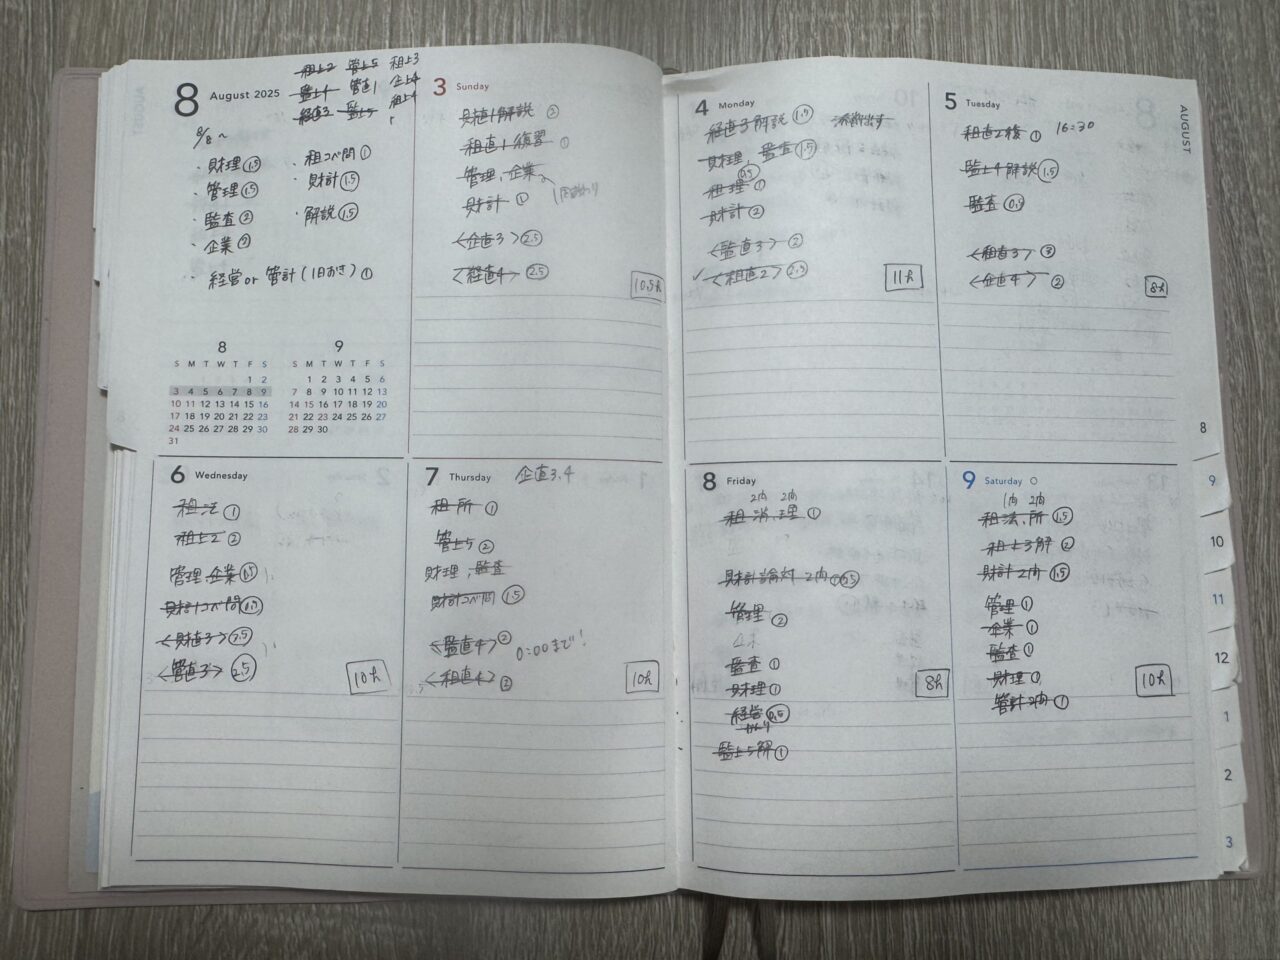 8 August 2025
租上2 管上5 租上3
監上4 管直1 企上4
経直3 監上5 租上4
8/8~
・財理 1.5 ・租コベ問 1
・管理 1.5 ・財計 1.5
・監査 2 ・解説 1.5
・企業 2
・経営 or 管計(1日おき) 1
8 9
S M T W T F S S M T W T F S
1 2 1 2 3 4 5 6
3 4 5 6 7 8 9 7 8 9 10 11 12 13
10 11 12 13 14 15 16 14 15 16 17 18 19 20
17 18 19 20 21 22 23 21 22 23 24 25 26 27
24 25 26 27 28 29 30 28 29 30
31
3 Sunday
財直1解説 2
租直1復習 1
管理、企業
財計 1
<企直3> 2.5
<経直4> 2.5
10.5h
4 Monday
経直3解説 1.5
財理、監査 1.5
租理 1
0.5
財計 2
<監直3> 2
✓ <租直2> 2.5
11h
5 Tuesday
租直2復 1 16:30
監上4解説 1.5
監査 0.5
<租直3> 3
<企直4> 2
8h
6 Wednesday
租法 1
租上2 2
管理、企業 1.5
財計コベ問 0.5
<財直3> 2.5
<管直3> 2.5
10h
7 Thursday 企直3.4
租所 1
管上5 2
財理、監査
財計コベ問 1.5
<監直4> 2 0:00まで!
<租直4> 2
10h
8 Friday
2内 2内
租消、理 1
財計論対 2内 0.5
管理 2
監査 1
財理 1
経営 0.5
監上5解 1
8h
9 Saturday
1内 2内
租法、所 1.5
租上3解 2
財計2内 1.5
管理 1
企業 1
監査 1
財理 1
管計2内 1
10h
AUGUST
8
9
10
11
12
1
2
3